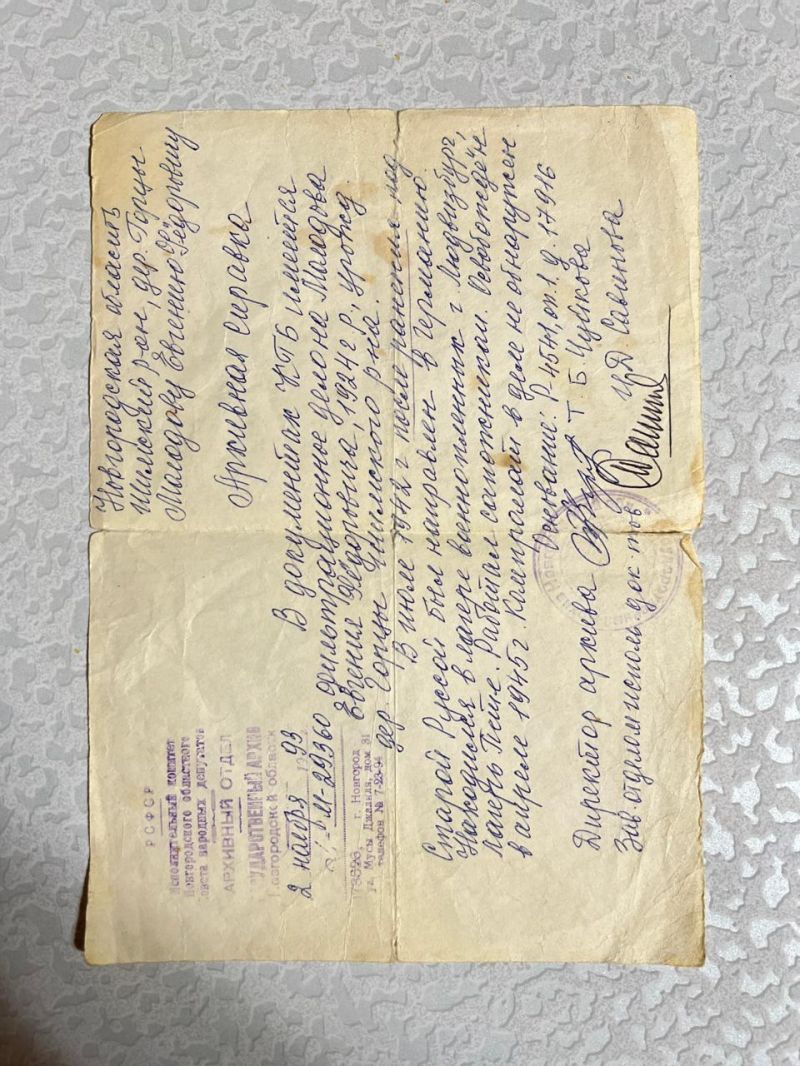 РСФСР
Исполнительный комитет
Новгородского областного
Совета народных депутатов
АРХИВНЫЙ ОТДЕЛ
ГОСУДАРСТВЕННЫЙ АРХИВ
Новгородской области
2 ноября 1993
М-29360
173526, г. Новгород
ул. Мусы Джалиля, дом 31
телефон № 7-23-94
Новгородская область
Шимский р-он, дер. Горцы
Молодову Евгению Фёдоровичу
Архивная справка
В документах КГБ имеется
фильтрационное дело на Молодова
Евгения Фёдоровича, 1924 г.р., урожд.
дер. Горцы Шимского р-на.
В июле 1942 г после ранения под
Старой Руссой был направлен в Германию.
Находился в лагере военнопленных г. Людвизбург,
лагерь Работал сапожником. Освобождён
в апреле 1945 г. Компромат в деле не обнаружен
Основание: Р-4541, оп. 1. д. 17916
Директор архива Т. Б. Чуйкова
Зав отделом использ док-тов Ц.Д. Савинова